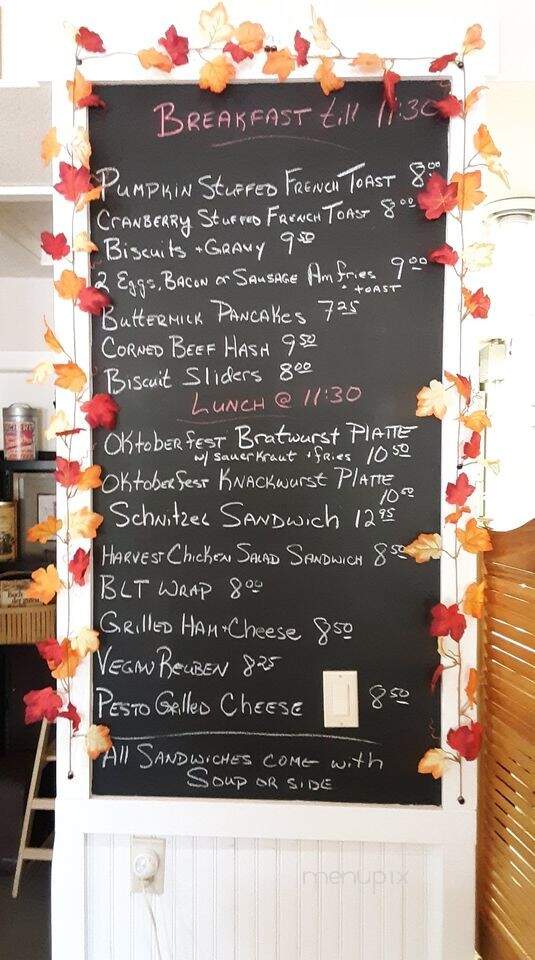 BREAKFAST till 11:30
PUMPKIN STUFFED FRENCH TOAST 8.00
CRANBERRY STUFFED FRENCH TOAST 8.00
Biscuits + GRAVY 9.50
2 Eggs, BACON or SAUSAGE Am fries 9.00
+ TOAST
BUTTERMILK PANCAKES 7.25
CORNED BEEF HASH 9.50
Biscuit Sliders 8.00
LUNCH @ 11:30
OKtoberfest Bratwurst PLATTE
w/ sauerkraut + fries 10.50
OKtoberfest KNACKWURST PLATTE
10.50
SCHNITZEL SANDWICH 12.95
HARVEST CHICKEN SALAD SANDWICH 8.50
BLT WRAP 8.00
GRILLED HAM + CHEESE 8.50
VEGAN REUBEN 8.25
PESTO GRILLED CHEESE 8.50
All SANDWICHES COME with
SOUP OR SIDE
menupix